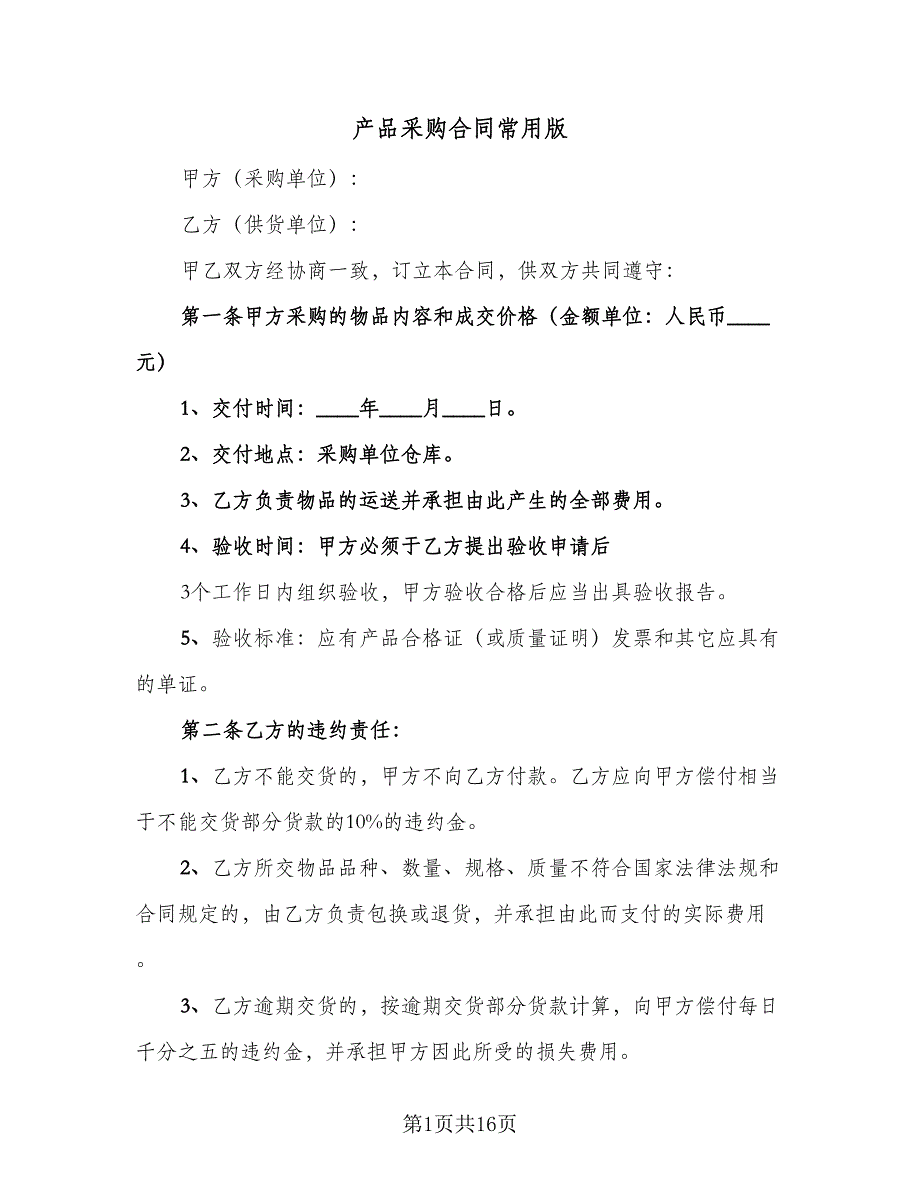 产品采购合同常用版
甲方（采购单位）：
乙方（供货单位）：
甲乙双方经协商一致，订立本合同，供双方共同遵守：
第一条甲方采购的物品内容和成交价格（金额单位：人民币____
元）
1、交付时间：____年____月____日。
2、交付地点：采购单位仓库。
3、乙方负责物品的运送并承担由此产生的全部费用。
4、验收时间：甲方必须于乙方提出验收申请后
3个工作日内组织验收，甲方验收合格后应当出具验收报告。
5、验收标准：应有产品合格证（或质量证明）发票和其它应具有
的单证。
第二条乙方的违约责任：
1、乙方不能交货的，甲方不向乙方付款。乙方应向甲方偿付相当
于不能交货部分货款的10%的违约金。
2、乙方所交物品品种、数量、规格、质量不符合国家法律法规和
合同规定的，由乙方负责包换或退货，并承担由此而支付的实际费用
。
3、乙方逾期交货的，按逾期交货部分货款计算，向甲方偿付每日
千分之五的违约金，并承担甲方因此所受的损失费用。
第1页共16页